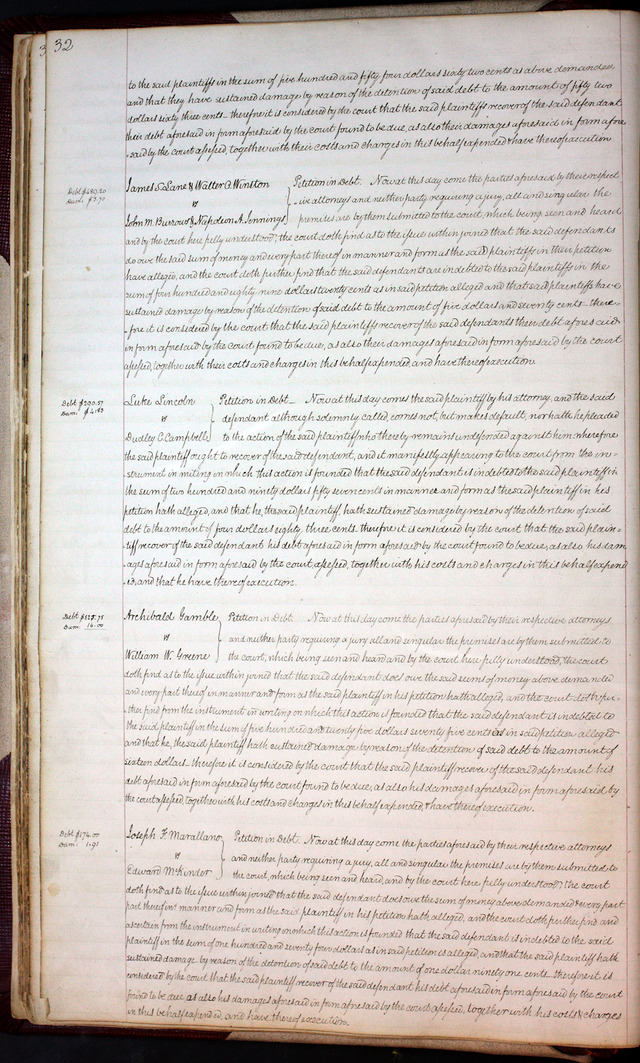 32
to the said plaintiffs in the sum of five hundred and fifty four dollars sixty two cents as above demanded
and that they have sustained damage by reason of the detention of said debt to the amount of fifty two
dollars sixty three cents. therefore it is considered by the court that the said plaintiffs recover of the said defendant
their debt aforesaid in form aforesaid by the court found to be due, as also their damages aforesaid in form afore
-said by the court assessed, together with their costs and charges in this behalf expended & have thereof execution
Debt $489.20
Dam: 5.70
James S. Lane & Walter A. Winston
vs
John M. Burrows & Napoleon A. Jennings
Petition in Debt. Now at this day come the parties aforesaid by their respect
-ive attorneys and neither party requiring a jury, all and singular the
premises are by them submitted to the court, which being seen and heard
and by the court here fully understood; the court doth find as to the issue within joined that the said defendants
do owe the said sum of money and every part thereof in manner and form as the said plaintiffs in their petition
have alleged, and the court doth further find that the said defendants are indebted to the said plaintiffs in the
sum of four hundred and eighty nine dollars twenty cents as in said petition alleged and that said plaintiffs have
sustained damage by reason of the detention of said debt to the amount of five dollars and seventy cents – there-
-fore it is considered by the court that the said plaintiffs recover of the said defendants their debt aforesaid
in form aforesaid by the court found to be due, as also their damages aforesaid in form aforesaid by the court
assessed, together with their costs and charges in this behalf expended, and have thereof execution.
Debt $290.57
Dam: 4.83
Luke Lincoln
vs
Dudley C. Campbell
Petition in Debt – Now at this day comes the said plaintiff by his attorney, and the said
defendant although solemnly called, comes not, but makes default, nor hath he pleaded
to the action of the said plaintiff who thereby remains undefended against him wherefore
the said plaintiff ought to recover of the said defendant, and it manifestly appearing to the court from the in-
-strument in writing on which this action is founded that the said defendant is indebted to the said plaintiff in
the sum of two hundred and ninety dollars fifty seven cents in manner and form as the said plaintiff in his
petition hath alleged, and that he, the said plaintiff hath sustained damage by reason of the detention of said
debt to the amount of four dollars eighty three cents. therefore it is considered by the court that the said plain-
-tiff recover of the said defendant his debt aforesaid in form aforesaid by the court found to be due, as also his dam
-ages aforesaid in form aforesaid by the court assessed, together with his costs and charges in this behalf expend
-ed, and that he have thereof execution.
Debt $525.75
Dam: 16.00
Archibald Gamble
vs
William W. Greene
Petition in Debt. Now at this day come the parties aforesaid by their respective attorneys
and neither party requiring a jury all and singular the premises are by them submitted to
the court, which being seen and heard and by the court here fully understood, the court
doth find as to the issue within joined that the said defendant does owe the said sums of money above demanded
and every part thereof in manner and form as the said plaintiff in his petition hath alleged, and the court doth fur-
-ther find from the instrument in writing on which this action is founded that the said defendant is indebted to
the said plaintiff in the sum of five hundred and twenty five dollars seventy five cents as in said petition alleged
and that he, the said plaintiff hath sustained damage by reason of the detention of said debt to the amount of
sixteen dollars. therefore it is considered by the court that the said plaintiff recover of the said defendant his
debt aforesaid in form aforesaid by the court found to be due, as also his damages aforesaid in form aforesaid by
the court assessed, together with his costs and charges in this behalf expended, & have thereof execution.
Debt $174.00
Dam: 1.91
Joseph F. Marallano
vs
Edward McKinder
Petition in Debt. Now at this day come the parties aforesaid by their respective attorneys
and neither party requiring a jury, all and singular the premises are by them submitted to
the court, which being seen and heard, and by the court here fully understood; the court
doth find as to the issue within joined that the said defendant does owe the sum of money above demanded & every part
part thereof in manner and form as the said plaintiff in his petition hath alleged, and the court doth further find and
ascertain from the instrument in writing on which this action is founded that the said defendant is indebted to the said
plaintiff in the sum of one hundred and seventy four dollars as in said petition is alleged, and that the said plaintiff hath
sustained damage by reason of the detention of said debt to the amount of one dollar ninety one cents. therefore it is
considered by the court that the said plaintiff recover of the said defendant his debt aforesaid in form aforesaid by the court
found to be due, as also his damages aforesaid in form aforesaid by the court assessed, together with his costs & charges
in this behalf expended, and have thereof execution.